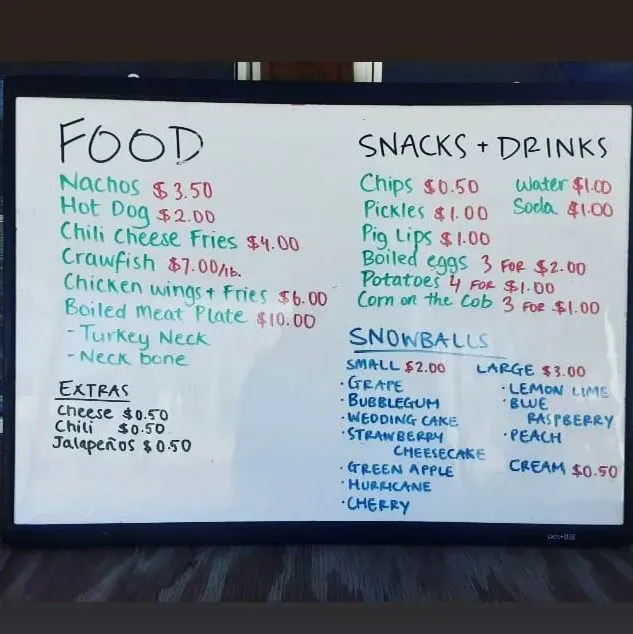 FOOD
Nachos $3.50
Hot Dog $2.00
Chili Cheese Fries $4.00
Crawfish $7.00/lb.
Chicken wings + Fries $6.00
Boiled Meat Plate $10.00
- Turkey Neck
- Neck bone
EXTRAS
Cheese $0.50
Chili $0.50
Jalapeños $0.50
SNACKS + DRINKS
Chips $0.50 Water $1.00
Pickles $1.00 Soda $1.00
Pig Lips $1.00
Boiled eggs 3 FOR $2.00
Potatoes 4 FOR $1.00
Corn on the Cob 3 FOR $1.00
SNOWBALLS
SMALL $2.00 LARGE $3.00
· GRAPE
· BUBBLEGUM
· WEDDING CAKE
· STRAWBERRY
CHEESECAKE
· GREEN APPLE
· HURRICANE
· CHERRY
· LEMON LIME
· BLUE
RASPBERRY
· PEACH
CREAM $0.50